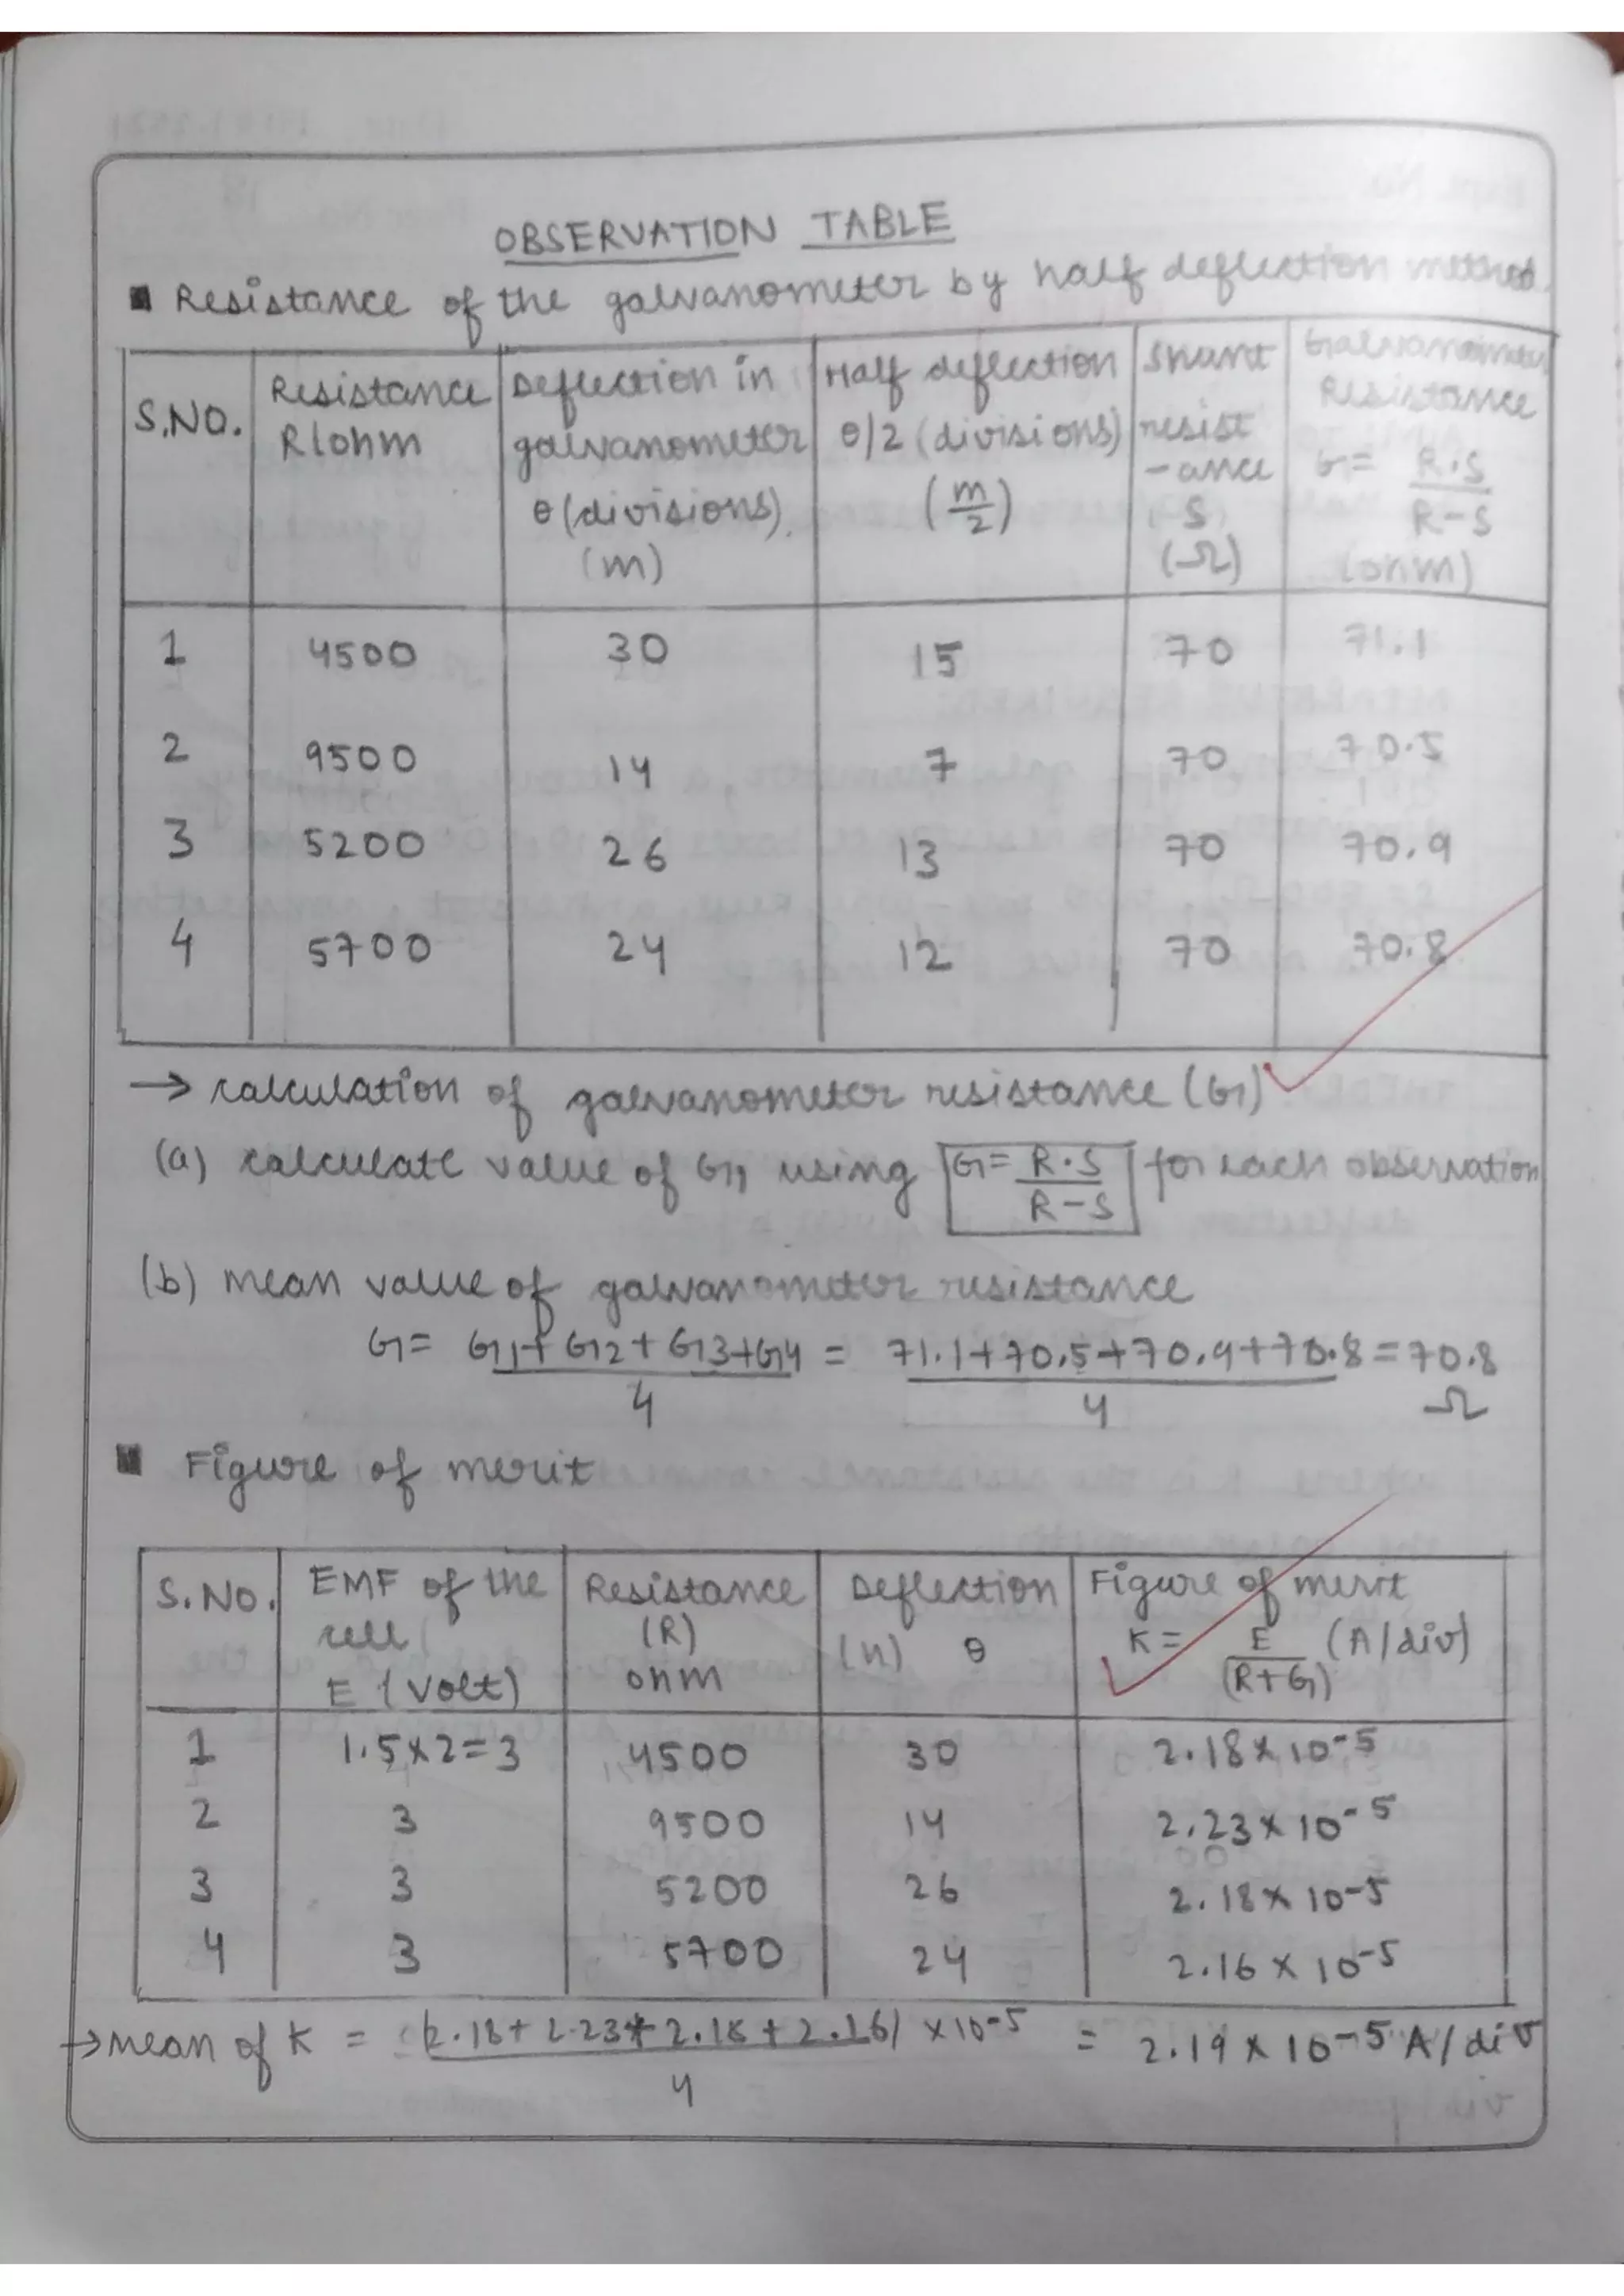 OBSERVATION TABLE
■ Resistance of the galvanometer by half deflection method.
S.NO. | Resistance R(ohm | Deflection in galvanometer θ (divisions). (m) | Half deflection θ/2 (divisions) (m/2) | Shunt resist-ance S (Ω) | Galvanometer Resistance G = R.S/R-S (ohm)
1 4500 30 15 70 71.1
2 9500 14 7 70 70.5
3 5200 26 13 70 70.9
4 5700 24 12 70 70.8
→ calculation of galvanometer resistance (G)
(a) calculate value of G, using G = R.S/R-S for each observation
(b) mean value of galvanometer resistance
G = G1+G2+G3+G4/4 = 71.1+70.5+70.9+70.8/4 = 70.8 Ω
■ Figure of merit
S.No. | EMF of the cell E (Volt) | Resistance (R) ohm | Deflection (n) θ | Figure of merit K = E/(R+G) (A/div)
1 1.5×2=3 4500 30 2.18×10-5
2 3 9500 14 2.23×10-5
3 3 5200 26 2.18×10-5
4 3 5700 24 2.16×10-5
→ mean of K = (2.18+2.23+2.18+2.16)×10-5/4 = 2.19×10-5 A/div